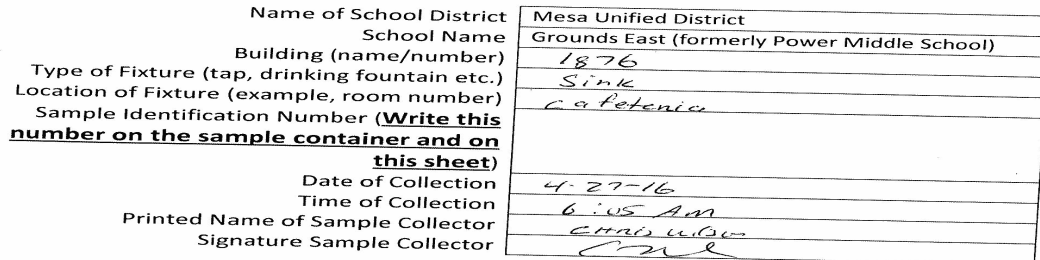 Name of School District Mesa Unified District
School Name Grounds East (formerly Power Middle School)
Building (name/number) 1876
Type of Fixture (tap, drinking fountain etc.) Sink
Location of Fixture (example, room number) cafetenia
Sample Identification Number (Write this
number on the sample container and on
this sheet)
Date of Collection 4-27-16
Time of Collection 6:05 Am
Printed Name of Sample Collector CHRIS WILSON
Signature Sample Collector